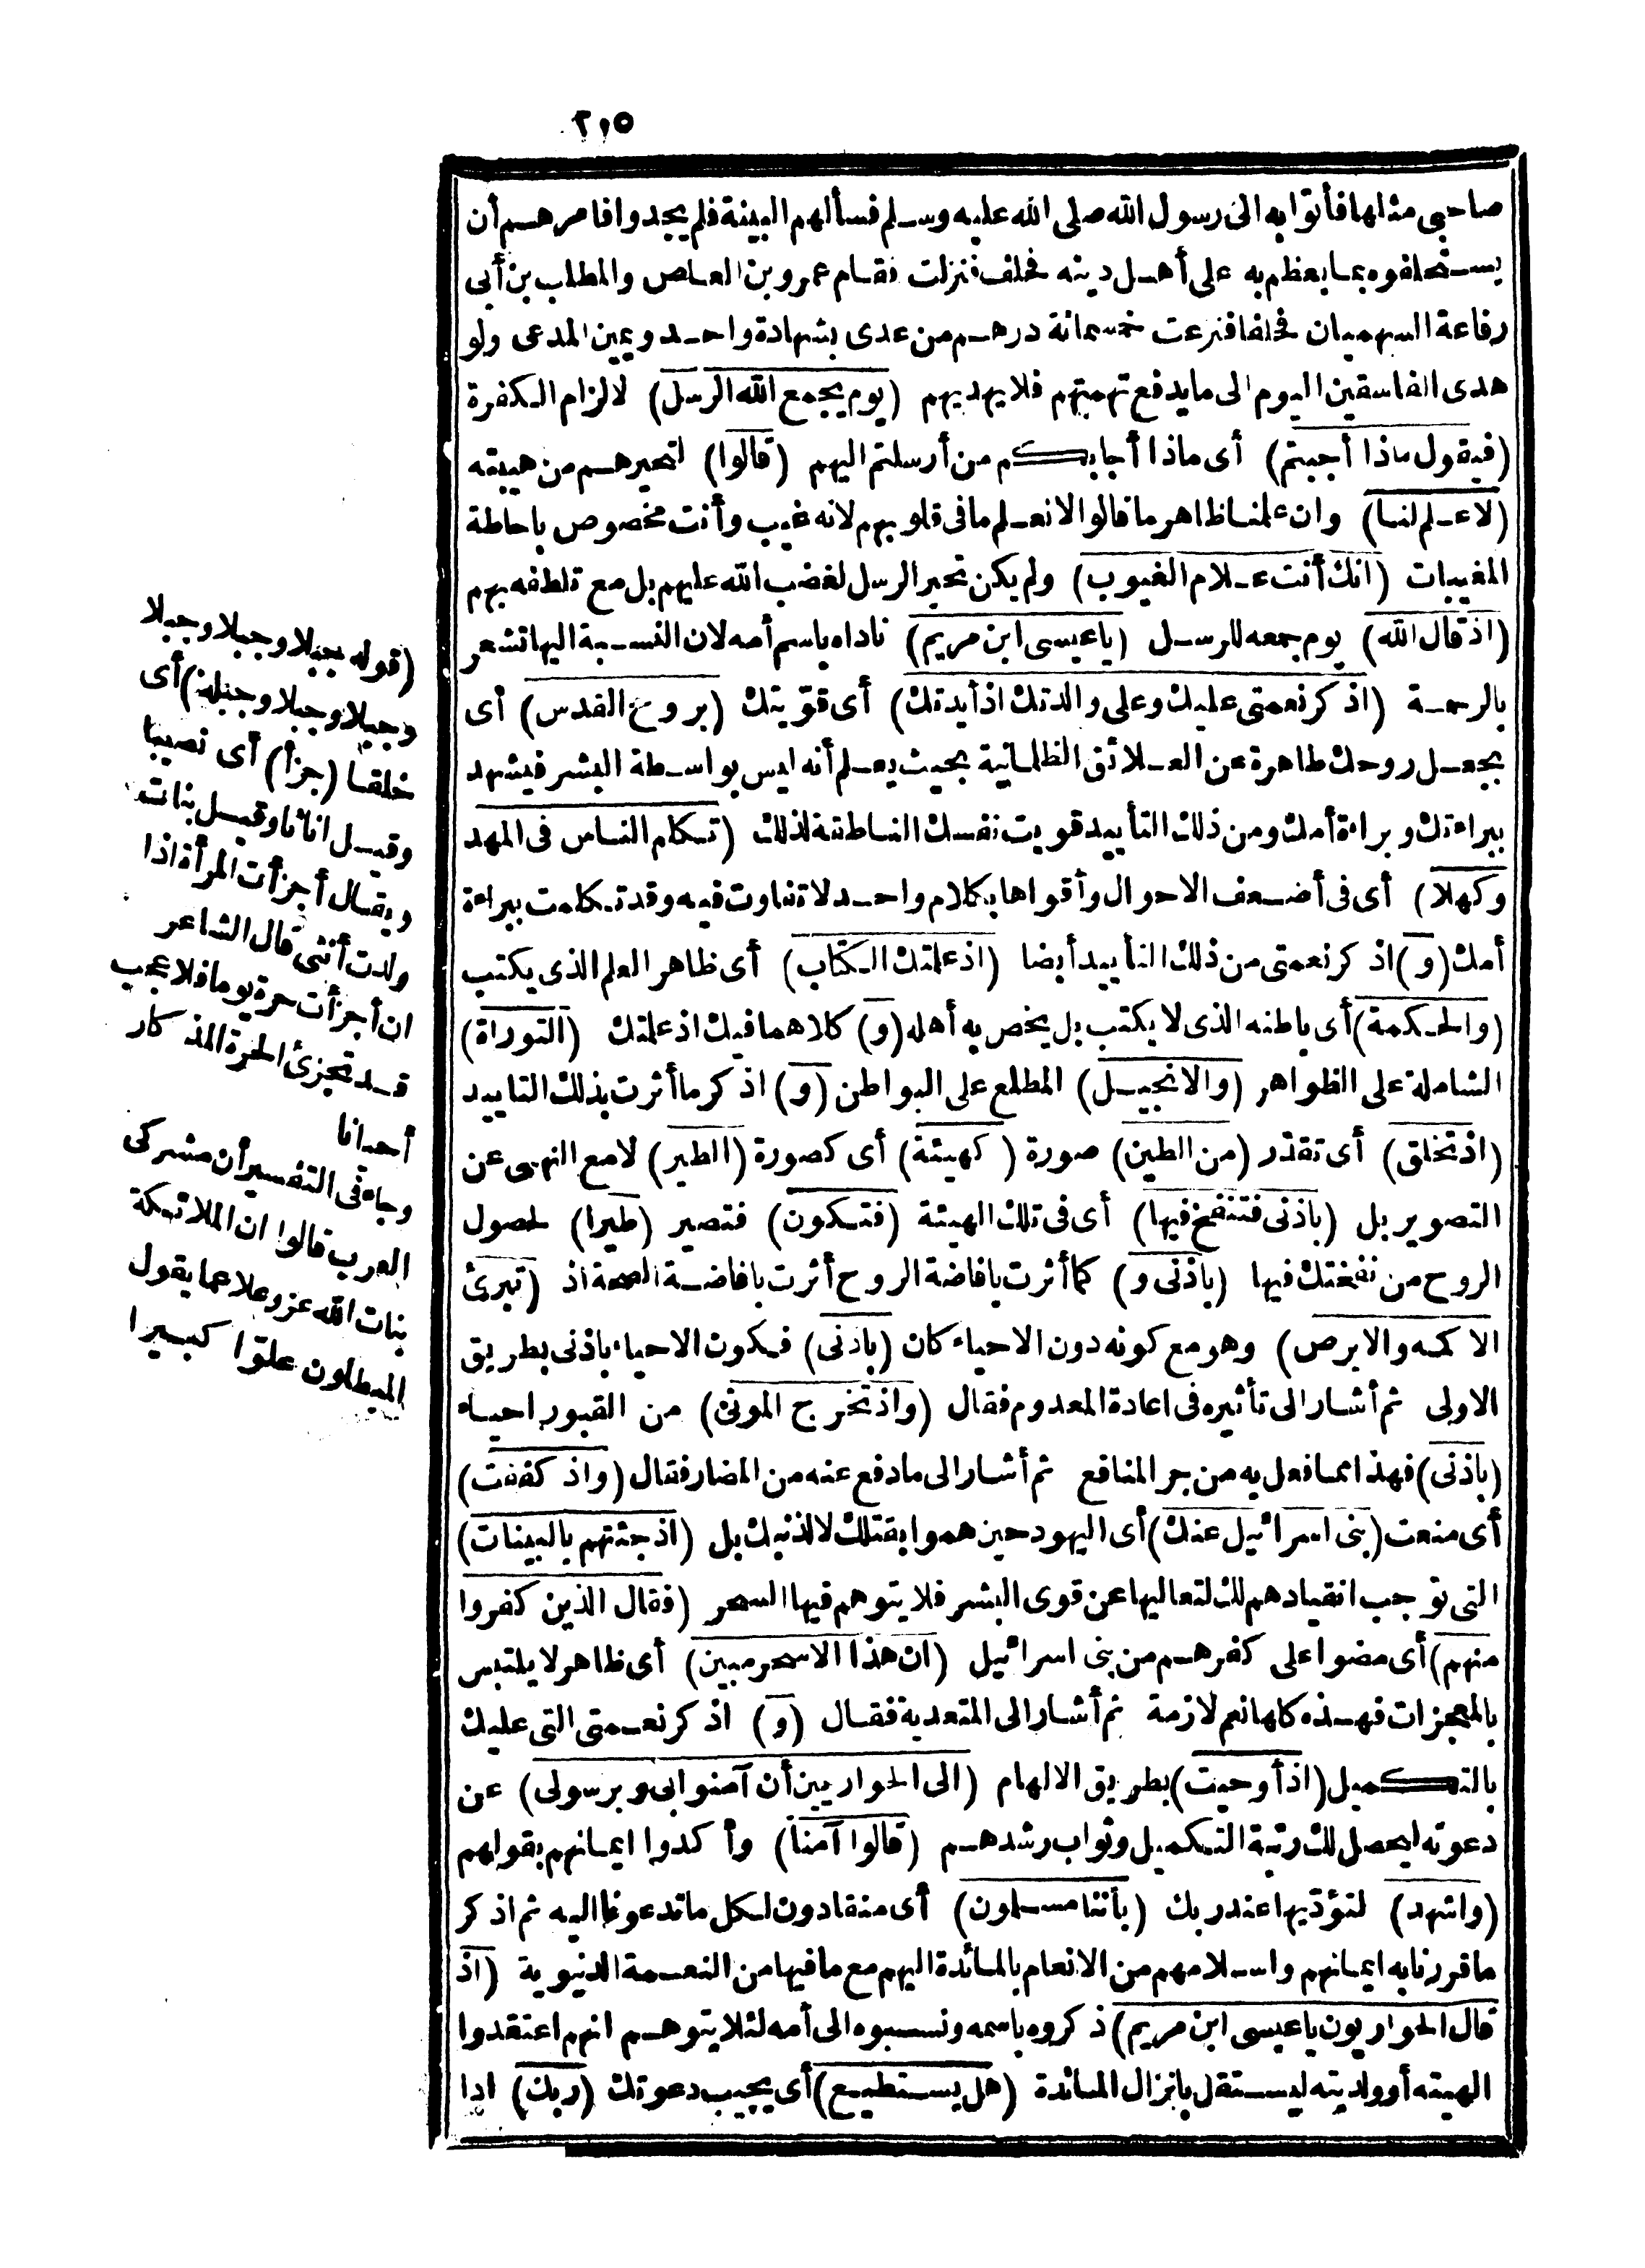 ٢٠٥
صاحبي مثلها فأتوا به الى رسول الله صلى الله عليه وسلم فسألهم البينة فلم يجدوا فامرهم أن
يستحلفوه بما يعظم به على أهل دينه فحلف فنزلت فقام عمرو بن العاص والمطلب بن أبي
رفاعة السهميان فحلفا فنزعت خمسمائة درهم من عدى بشهادة واحد ويمين المدعى ولو
هدى الفاسقين اليوم الى ما يدفع تهمتهم فلا يهديهم (يوم يجمع الله الرسل) لالزام الكفرة
(فيقول ماذا أجبتم) أى ماذا أجابكم من أرسلتم اليهم (قالوا) لتحيرهم من هيبته
(لا علم لنا) وان علمنا ظاهر ما قالوا لا نعلم ما فى قلوبهم لانه غيب وأنت مخصوص باحاطة
المغيبات (انك أنت علام الغيوب) ولم يكن تحير الرسل لغضب الله عليهم بل مع تلطفه بهم
(اذ قال الله) يوم جمعه للرسل (يا عيسى ابن مريم) ناداه باسم أمه لان النسبة اليها تشعر
بالرحمة (اذكر نعمتى عليك وعلى والدتك اذ أيدتك) أى قوّيتك (بروح القدس) أى
بجعل روحك طاهرة عن العلائق الظلمانية بحيث يعلم أنه ليس بواسطة البشر فيشهد
ببراءتك وبراءة أمك ومن ذلك التأييد قويت نفسك الناطقة لذلك (تكلم الناس فى المهد
وكهلا) أى فى أضعف الاحوال وأقواها بكلام واحد لا تفاوت فيه وقد تكلمت ببراءة
أمك (و) اذكر نعمتى من ذلك التأييد أيضا (اذ علمتك الكتاب) أى ظاهر العلم الذى يكتب
(والحكمة) أى باطنه الذى لا يكتب بل يخص به أهله (و) كلاهما فيك اذ علمتك (التوراة)
الشاملة على الظواهر (والانجيل) المطلع على البواطن (و) اذكر ما أثرت بذلك التاييد
(اذ تخلق) أى تقدّر (من الطين) صورة (كهيئة) أى كصورة (الطير) لا مع النهى عن
التصوير بل (باذنى فتنفخ فيها) أى فى تلك الهيئة (فتكون) فتصير (طيرا) لحصول
الروح من نفختك فيها (باذنى و) كما أثرت بافاضة الروح أثرت بافاضة الصحة اذ (تبرئ
الاكمه والابرص) وهو مع كونه دون الاحياء كان (باذنى) فيكون الاحياء باذنى بطريق
الاولى ثم أشار الى تأثيره فى اعادة المعدوم فقال (واذ تخرج الموتى) من القبور احياء
(باذنى) فهذا مما فعل به من جر المنافع ثم أشار الى ما دفع عنه من المضار فقال (واذ كففت)
أى منعت (بنى اسرائيل عنك) أى اليهود حين هموا بقتلك لا لذنبك بل (اذ جئتهم بالبينات)
التى توجب انقيادهم لك لتعاليها عن قوى البشر فلا يتوهم فيها السحر (فقال الذين كفروا
منهم) أى مضوا على كفرهم من بنى اسرائيل (ان هذا الا سحر مبين) أى ظاهر لا يلتبس
بالمعجزات فهذه كلها نعم لازمة ثم أشار الى المتعدية فقال (و) اذكر نعمتى التى عليك
بالتكميل (اذ أوحيت) بطريق الالهام (الى الحواريين أن آمنوا بى وبرسولى) عن
دعوته ليحصل لك رتبة التكميل وثواب رشدهم (قالوا آمنا) وأكدوا ايمانهم بقولهم
(واشهد) لتؤدّيها عند ربك (بأننا مسلمون) أى منقادون لكل ما تدعونا اليه ثم اذكر
ما قررنا به ايمانهم واسلامهم من الانعام بالمائدة اليهم مع ما فيها من النعمة الدنيوية (اذ
قال الحواريون يا عيسى ابن مريم) ذكروه باسمه ونسبوه الى أمه لئلا يتوهم انهم اعتقدوا
الهيته أو ولديته ليستقل بانزال المائدة (هل يستطيع) أى يجيب دعوتك (ربك) اذا
(قوله جبلا وجبلا وجبلا
وجبلا وجبلا وجبلة) أى
خلقا (جزأ) أى نصيبا
وقيل اناثا وقيل بنات
ويقال أجزأت المرأة اذا
ولدت أنثى قال الشاعر
ان أجزأت حرة يوما فلا عجب
قد تجزئ الحرة المذكار
أحيانا
وجاء فى التفسير أن مشركى
العرب قالوا ان الملائكة
بنات الله عز وعلا عما يقول
المبطلون علوّا كبيرا